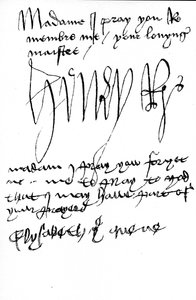 Madame I pray you Re
membre me your lovyng
maister
Henry R
madam I pray you forget
not me to pray to god
that I may have part of
your prayers
Elysabeth ye quene